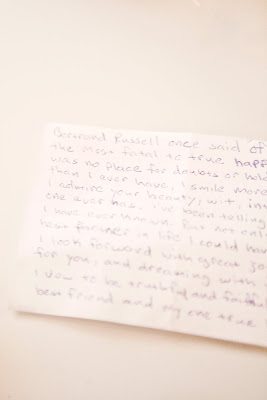 Bertrand Russell once said of
the most fatal to true happ
was no place for doubts or hold
than I ever have, I smile more
I admire your beauty, wit, in
one ever has. I've been telling
I have ever known. But not onl
best partner in life I could hav
I look forward with great jo
for you, and dreaming with
I vow to be truthful and faithfu
best friend and my one true